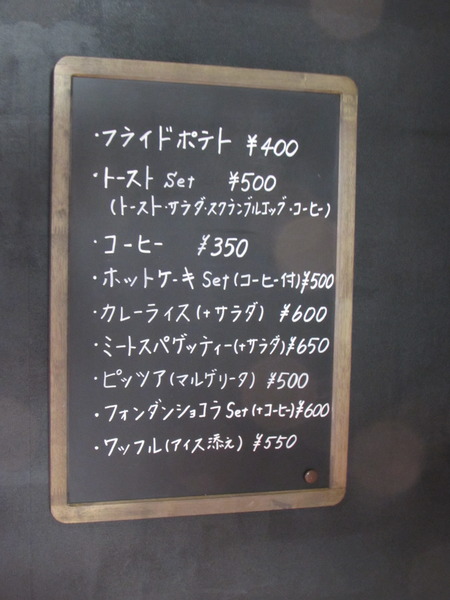 ・フライドポテト ¥400
・トースト Set ¥500
(トースト・サラダ・スクランブルエッグ・コーヒー)
・コーヒー ¥350
・ホットケーキ Set(コーヒー付)¥500
・カレーライス(+サラダ) ¥600
・ミートスパゲッティー(+サラダ)¥650
・ピッツア(マルゲリータ) ¥500
・フォンダンショコラ Set(+コーヒー)¥600
・ワッフル(アイス添え) ¥550